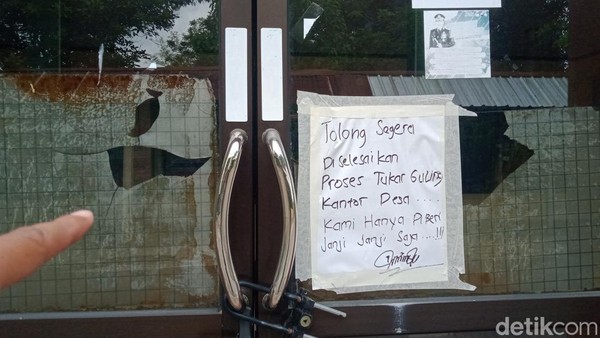 Tolong Sagera
Diselesaikan
Proses Tukar Guling
Kantor Desa .....
Kami Hanya Di Beri
Janji Janji Saja ....!!!
detikcom